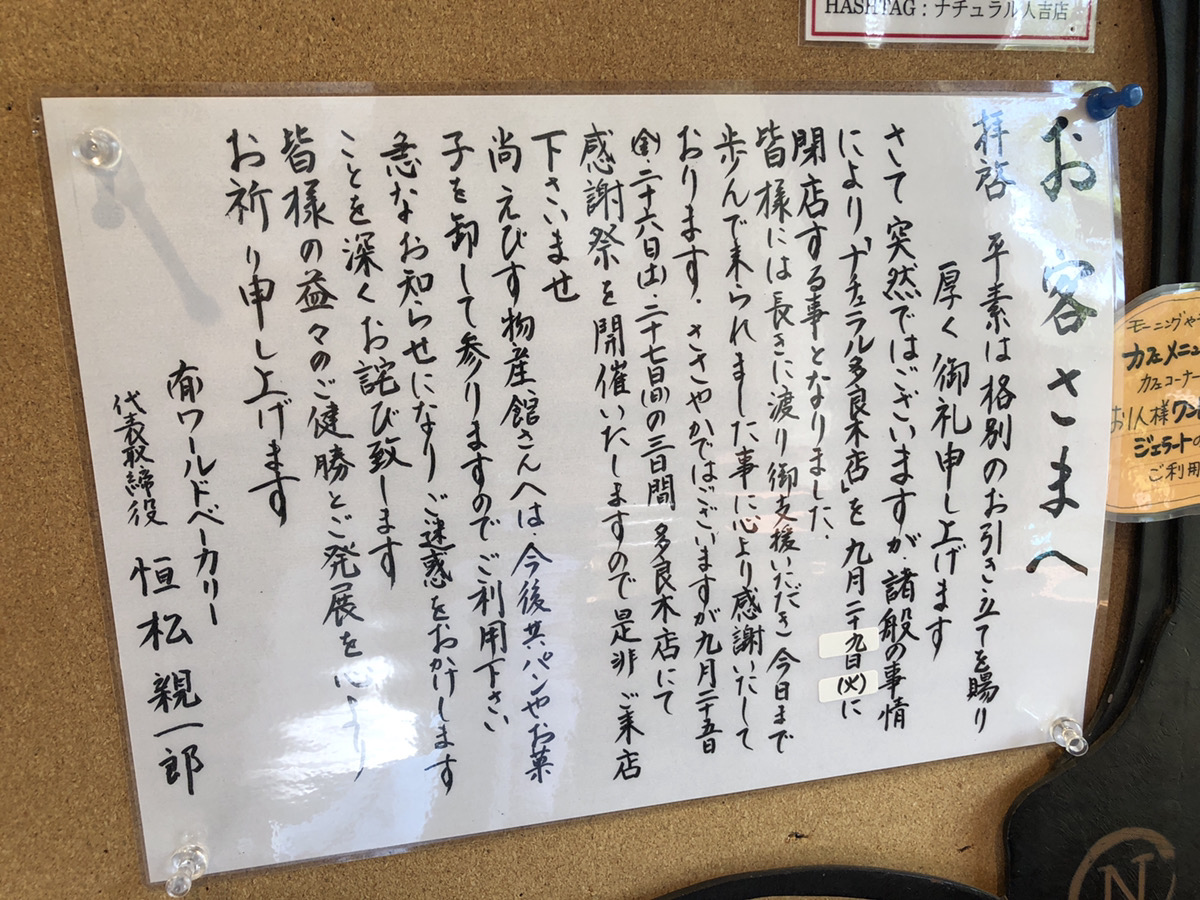 HASHTAG：ナチュラル人吉店
お客さまへ
拝啓　平素は格別のお引き立てを賜り
厚く御礼申し上げます
さて突然ではございますが、諸般の事情
により「ナチュラル多良木店」を九月二十九日(火)に
閉店する事となりました.
皆様には長きに渡り御支援いただき今日まで
歩んで来られました事に心より感謝いたして
おります. ささやかではございますが九月二十五日
(金).二十六日(土).二十七日(日)の三日間　多良木店にて
感謝祭を開催いたしますので是非ご来店
下さいませ
尚えびす物産館さんへは、今後共パンやお菓
子を卸して参りますのでご利用下さい
急なお知らせになりご迷惑をおかけします
ことを深くお詫び致します
皆様の益々のご健勝とご発展を心より
お祈り申し上げます
㈲ワールドベーカリー
代表取締役　恒松親一郎
モーニングや
カフェメニュ
カフェコーナー
お1人様ワン
ジェラートの
ご利用
N